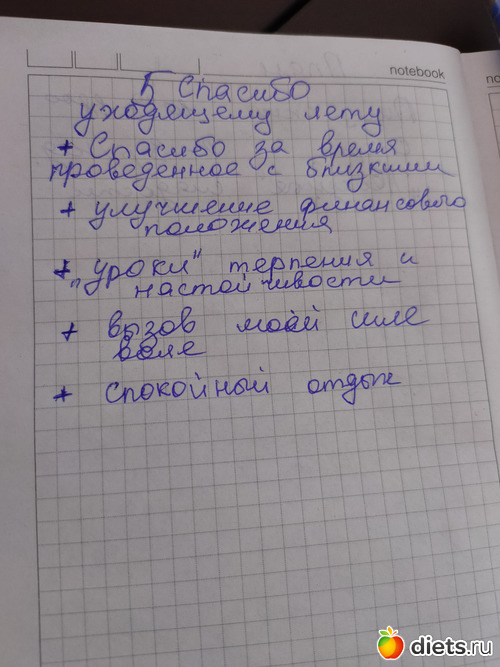 notebook
5 Спасибо
уходящему лету
+ Спасибо за время
проведенное с близкими
+ улучшение финансового
положения
+ "уроки" терпения и
настойчивости
+ вызов моей силе
воле
+ спокойный отдых
diets.ru